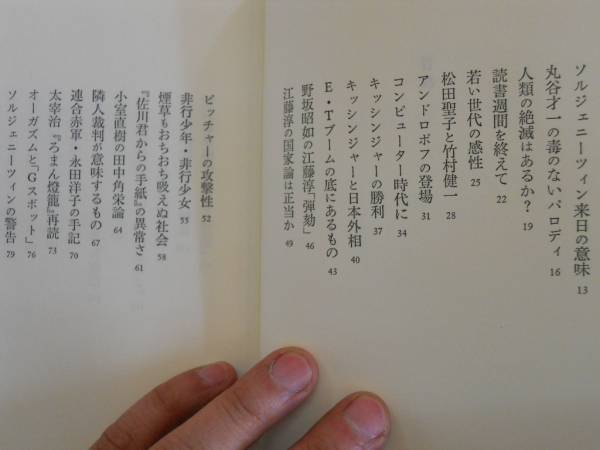 ソルジェニーツィン来日の意味 13
丸谷才一の毒のないパロディ 16
人類の絶滅はあるか? 19
読書週間を終えて 22
若い世代の感性 25
松田聖子と竹村健一 28
アンドロポフの登場 31
コンピューター時代に 34
キッシンジャーの勝利 37
キッシンジャーと日本外相 40
E・Tブームの底にあるもの 43
野坂昭如の江藤淳「弾劾」 46
江藤淳の国家論は正当か 49
ピッチャーの攻撃性 52
非行少年・非行少女 55
煙草もおちおち吸えぬ社会 58
『佐川君からの手紙』の異常さ 61
小室直樹の田中角栄論 64
隣人裁判が意味するもの 67
連合赤軍・永田洋子の手記 70
太宰治『ろまん燈籠』再読 73
オーガズムと「Gスポット」 76
ソルジェニーツィンの警告 79